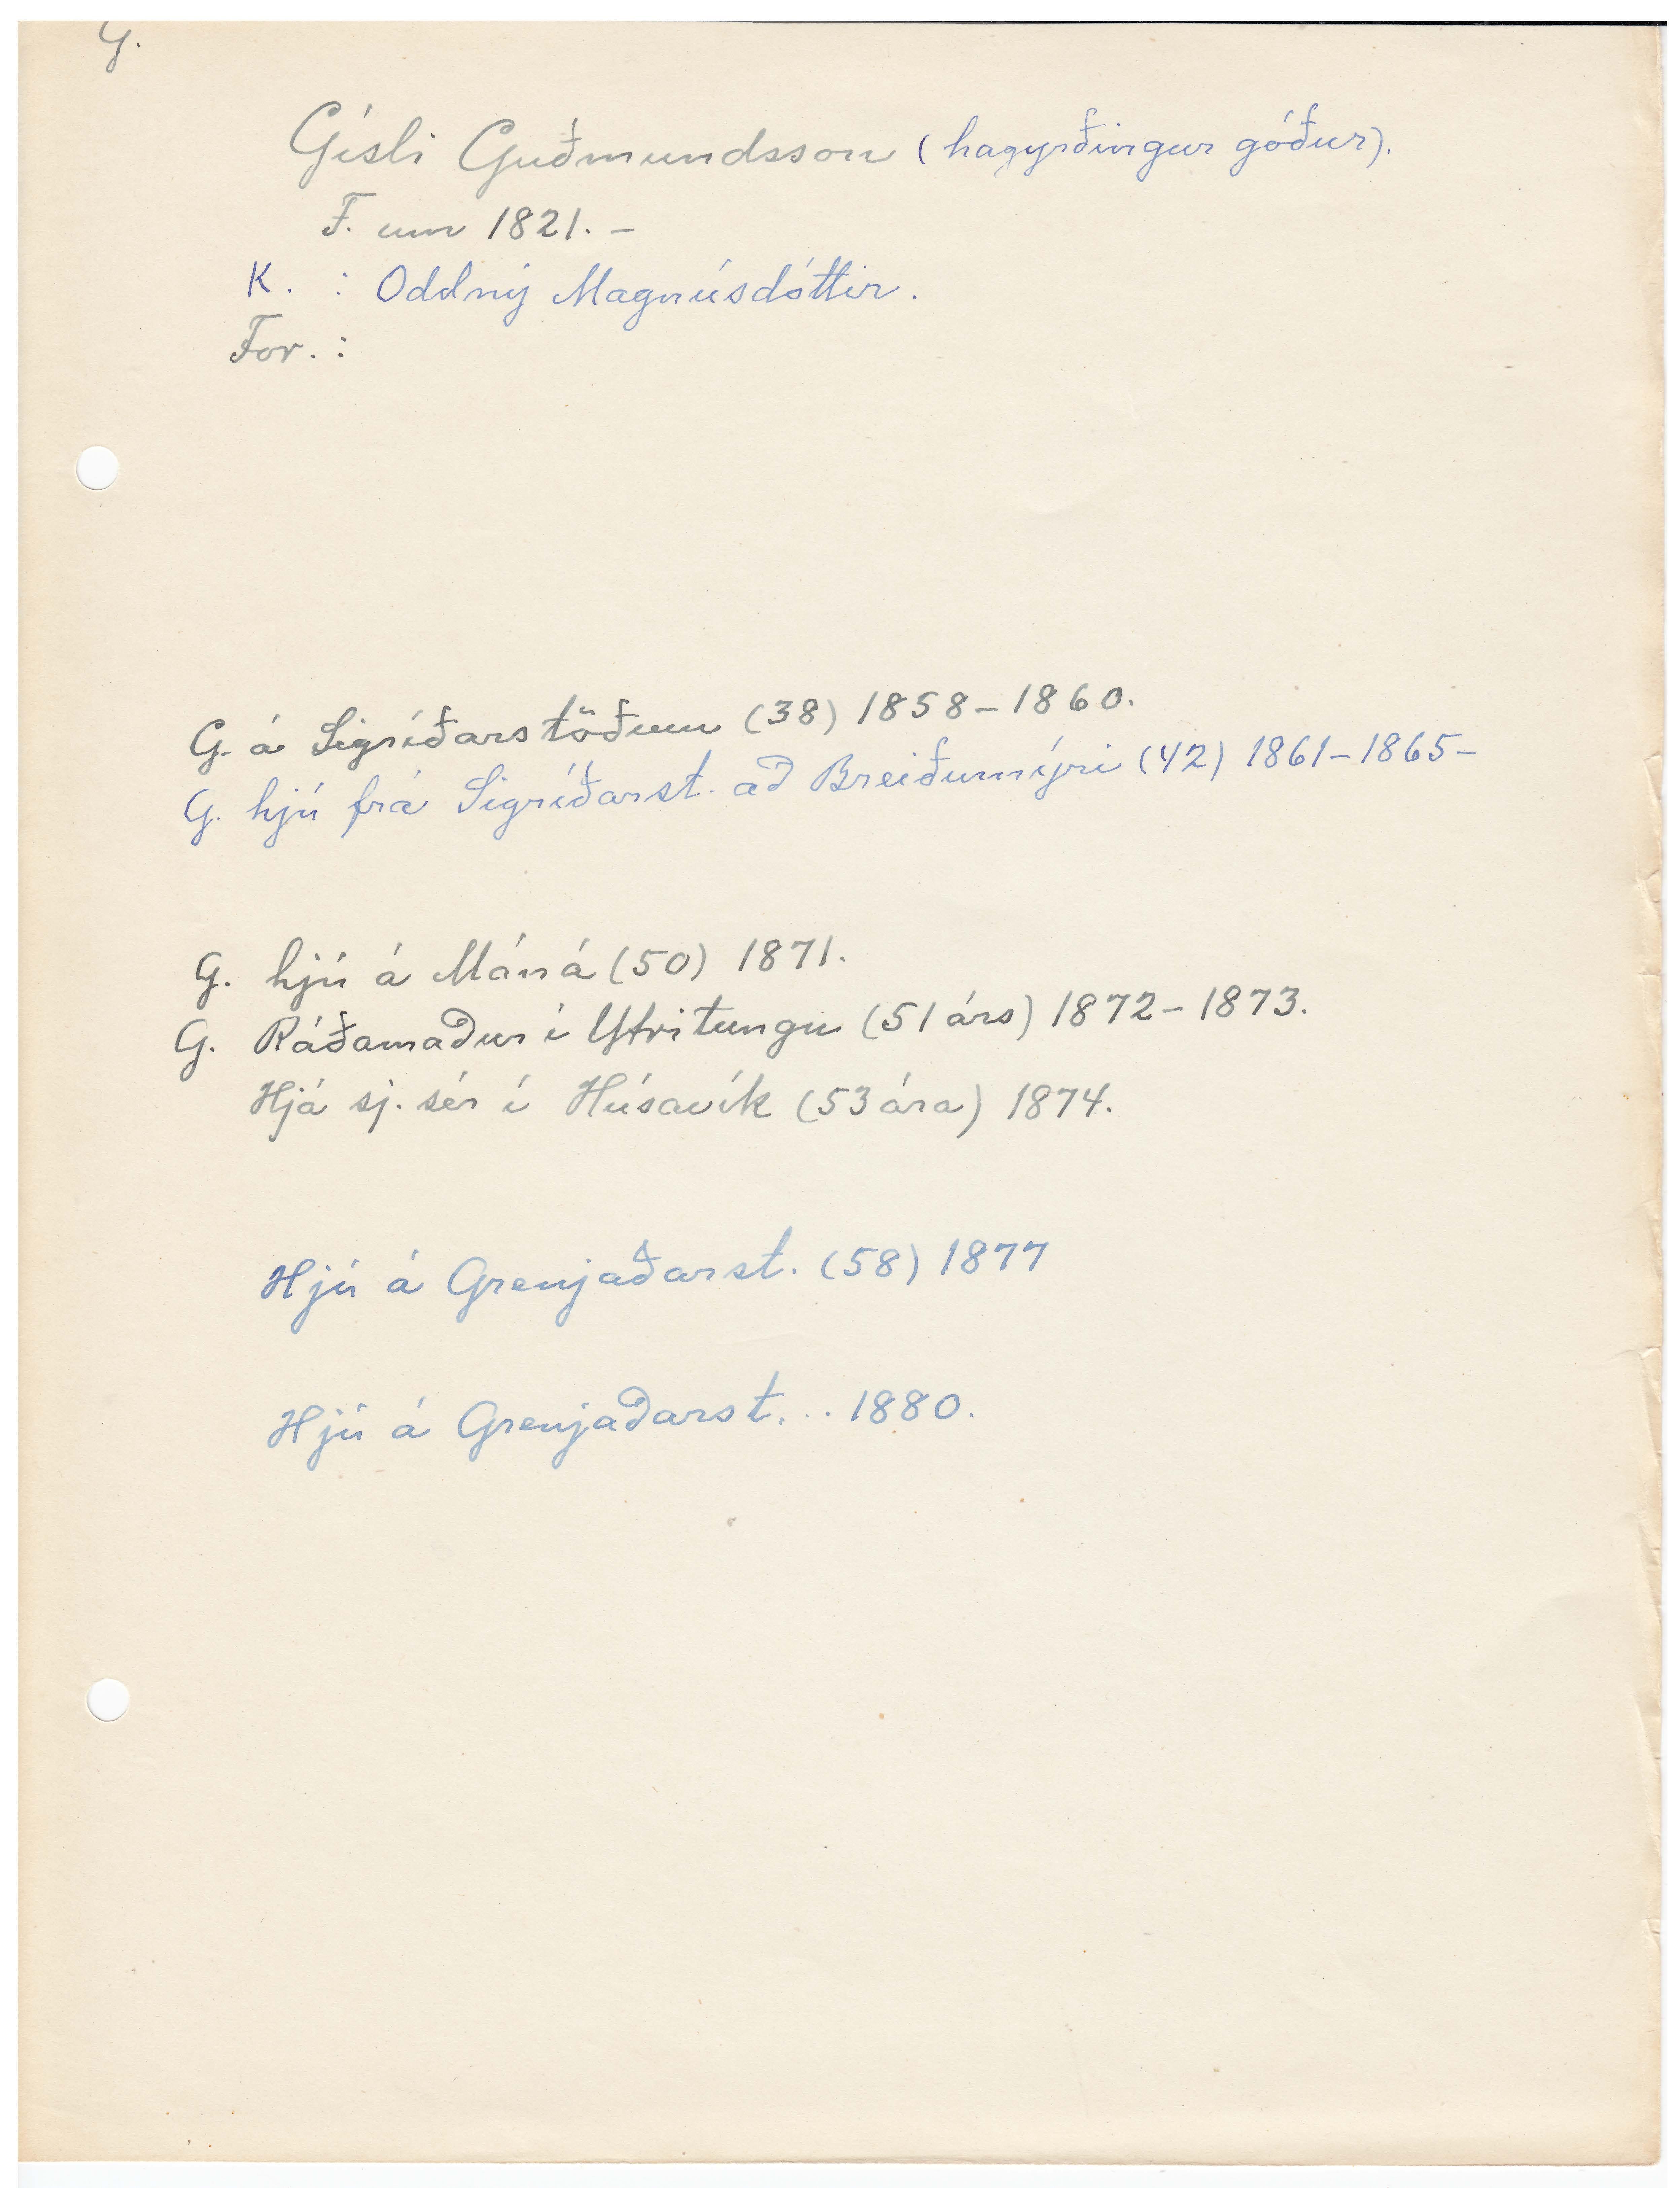 G.
Gísli Guðmundsson (hagyrðingur góður).
F. um 1821. –
K. : Oddný Magnúsdóttir.
For. :
G. á Sigríðarstöðum (38) 1858–1860.
G. hjú frá Sigríðarst. að Breiðumýri (42) 1861–1865–
G. hjú á Máná (50) 1871.
G. Ráðamaður í Ytritungu (51 árs) 1872–1873.
Hjá sj. sér í Húsavík (53 ára) 1874.
Hjú á Grenjaðarst. (58) 1877
Hjú á Grenjaðarst. .. 1880.